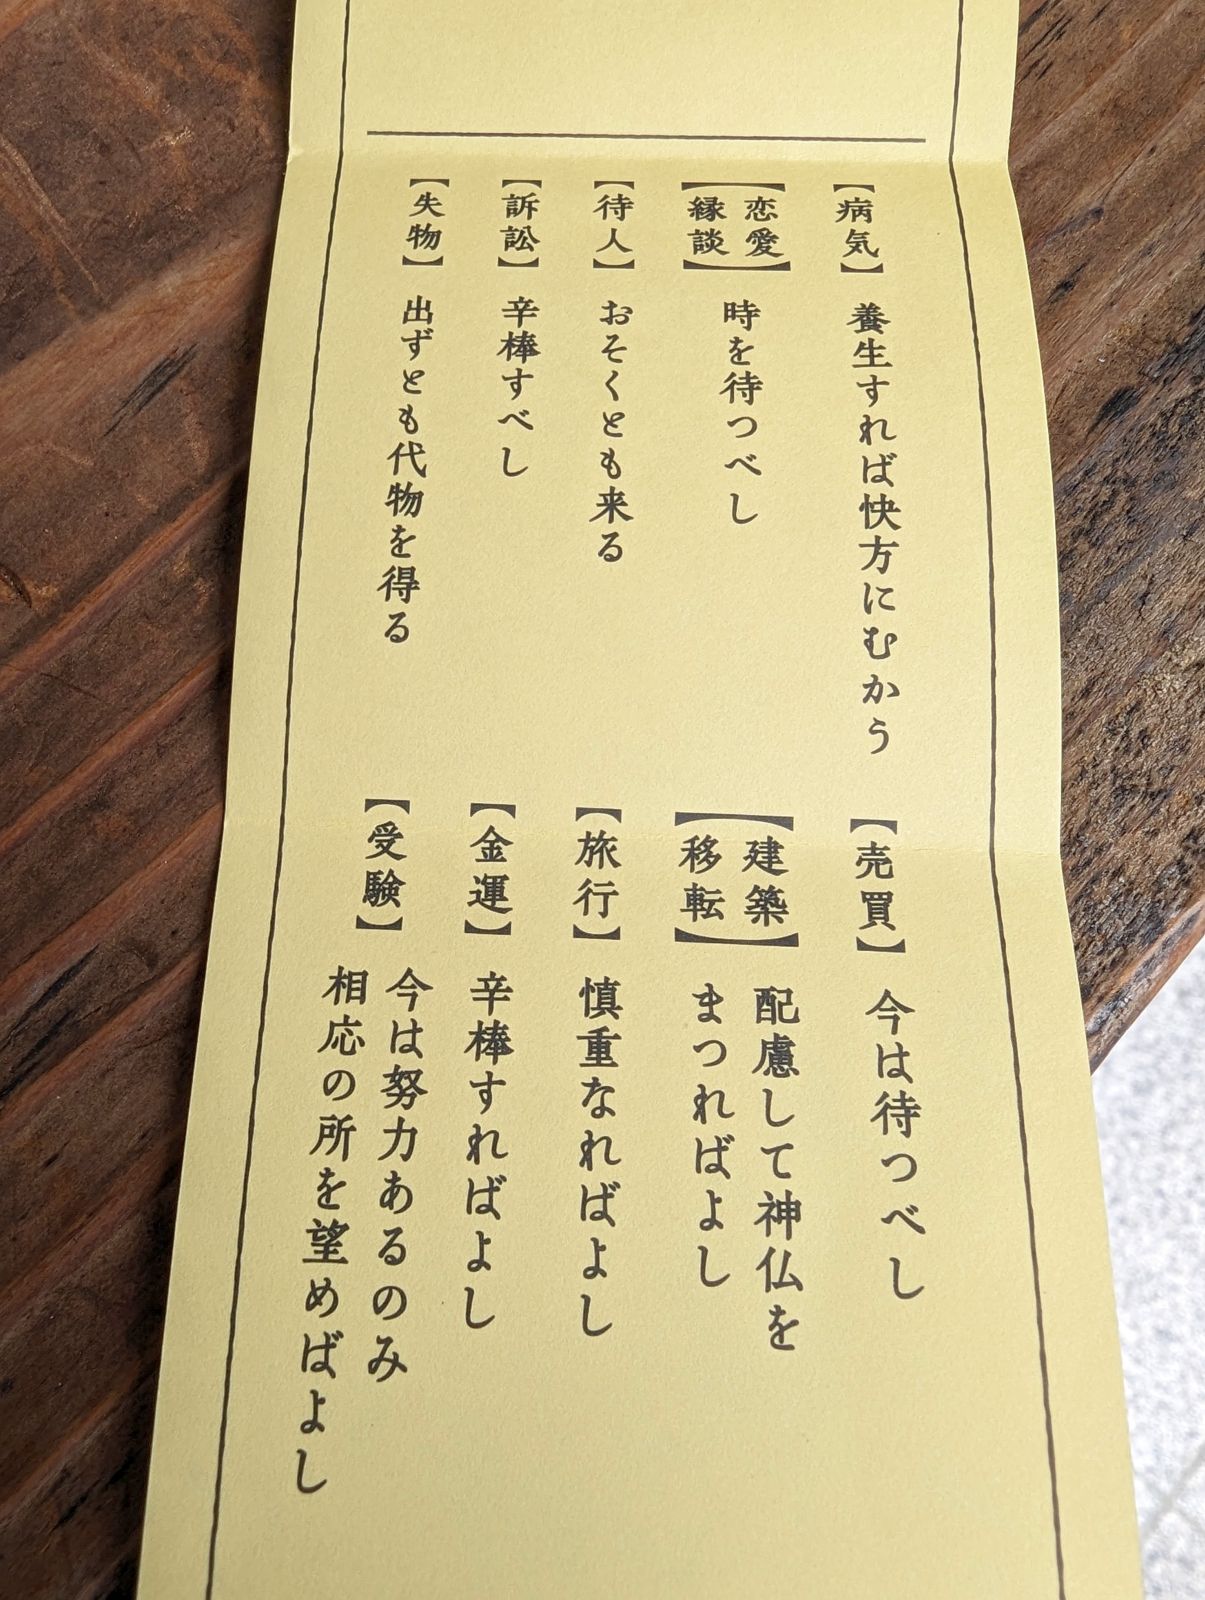 【病気】 養生すれば快方にむかう
【恋愛
縁談】 時を待つべし
【待人】 おそくとも来る
【訴訟】 辛棒すべし
【失物】 出ずとも代物を得る
【売買】 今は待つべし
【建築
移転】 配慮して神仏を
まつればよし
【旅行】 慎重なればよし
【金運】 辛棒すればよし
【受験】 今は努力あるのみ
相応の所を望めばよし